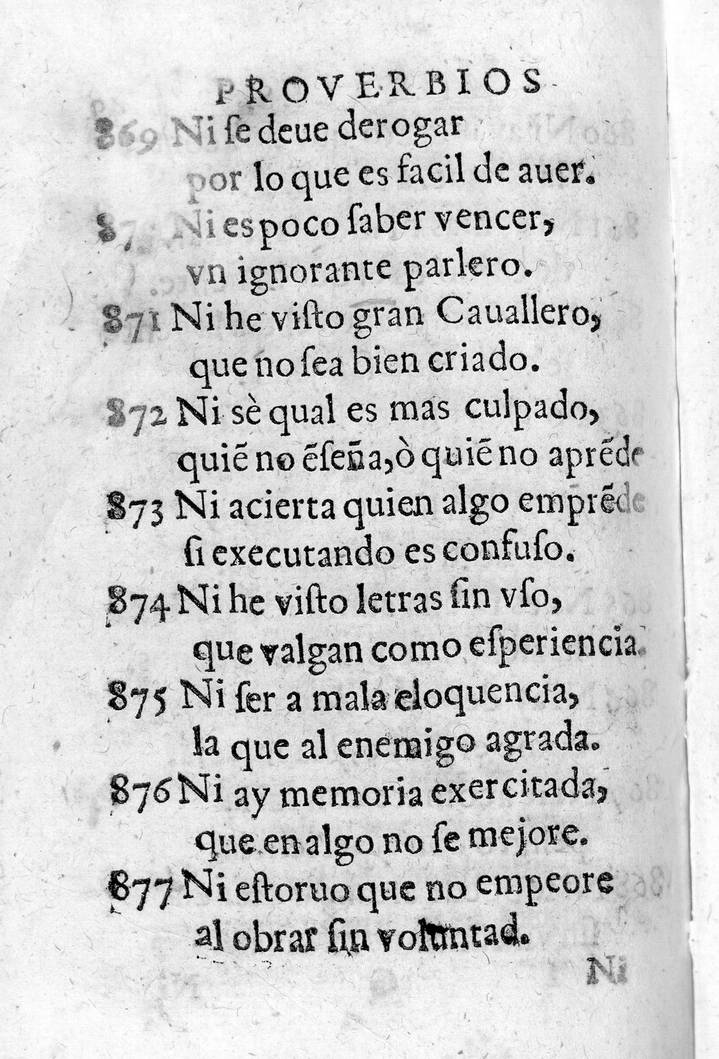 PROVERBIOS
869 Ni ſe deue derogar
por lo que es facil de auer.
87 Ni es poco ſaber vencer,
vn ignorante parlero.
871 Ni he viſto gran Cauallero,
que no ſea bien criado.
872 Ni sè qual es mas culpado,
quiē no ēſeña, ò quiē no aprēde
873 Ni acierta quien algo emprēde
ſi executando es confuſo.
874 Ni he viſto letras ſin vſo,
que valgan como eſperiencia.
875 Ni ſer a mala eloquencia,
la que al enemigo agrada.
876 Ni ay memoria exercitada,
que en algo no ſe mejore.
877 Ni eſtoruo que no empeore
al obrar ſin voluntad.
Ni